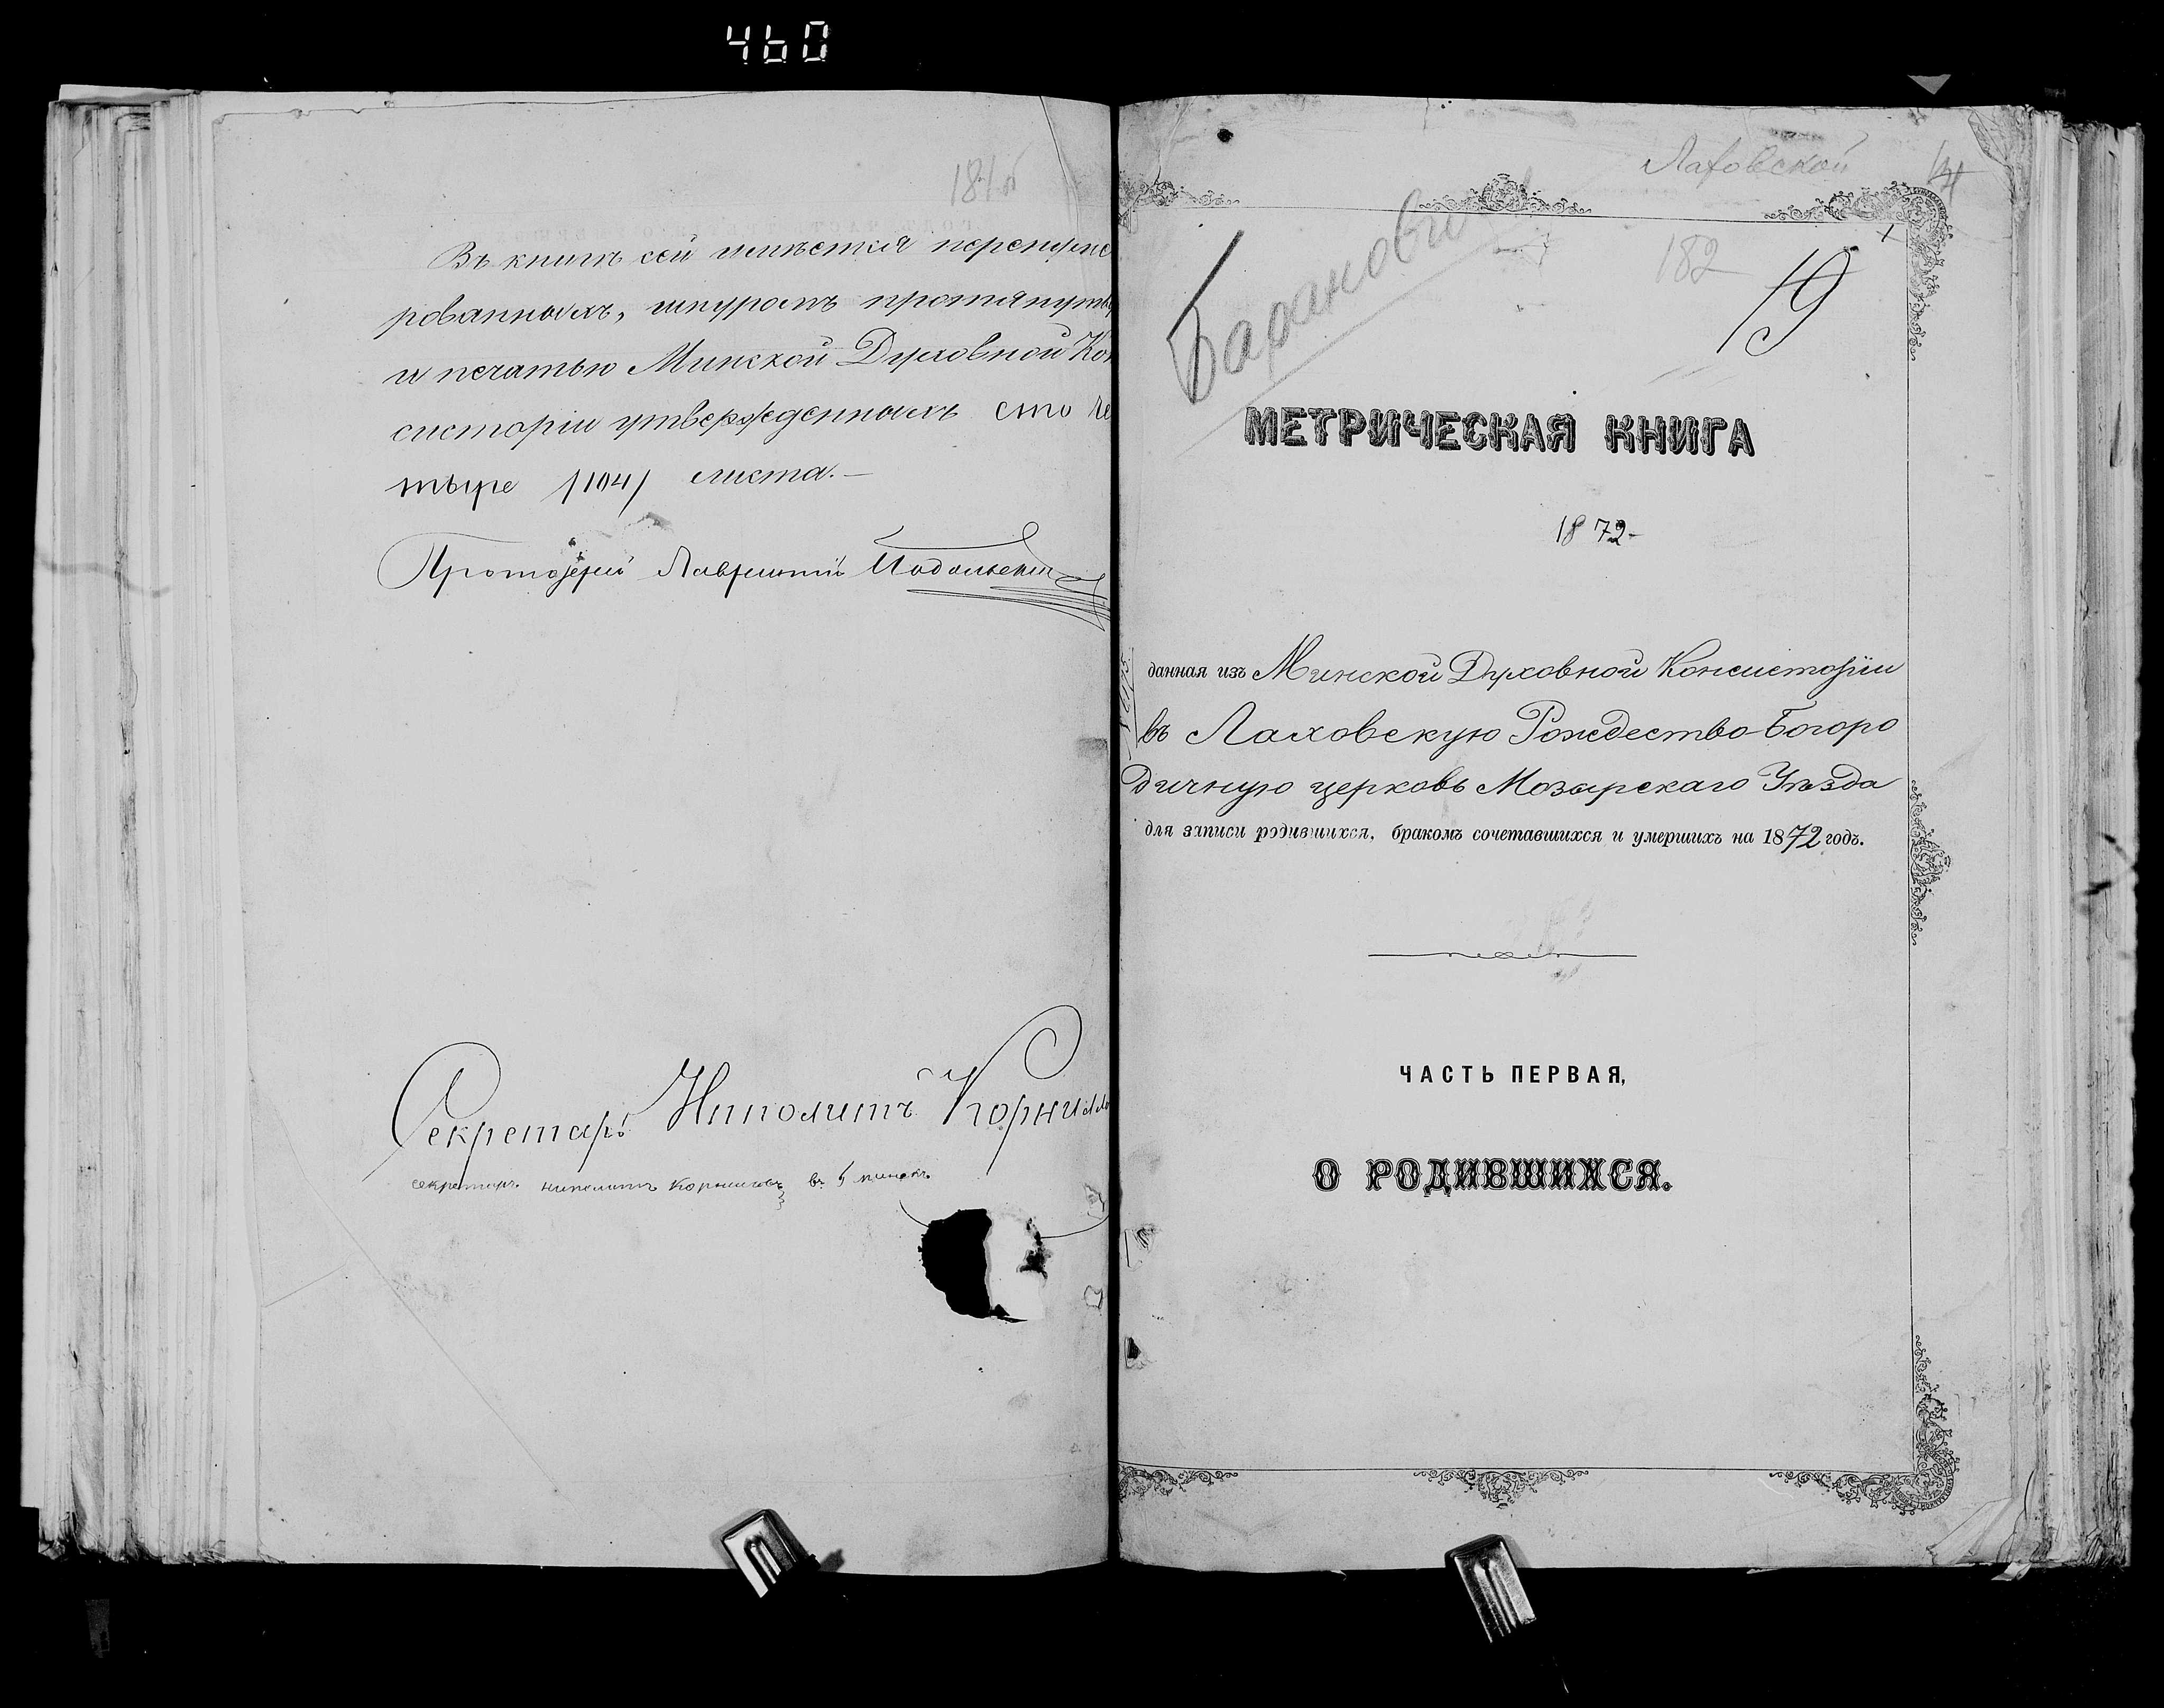 460
181об
Въ книгѣ сей имѣется перенуме
рованныхъ, шнуромъ протянуты
и печатью Минской Духовной Кон
систоріи утвержденныхъ сто че
тыре /104/ листа.—
Протоіерей Лаврентій
Секретарь Ипполитъ Корнило
секретарь ипполитъ корниловъ
Лаховской
182
19
МЕТРИЧЕСКАЯ КНИГА
1872-
данная изъ Минской Духовной Консисторіи
въ Лаховскую Рождество-Богоро
дичную церковь Мозырскаго Уѣзда
для записи родившихся, бракомъ сочетавшихся и умершихъ на 1872 годъ.
ЧАСТЬ ПЕРВАЯ,
О РОДИВШИХСЯ.